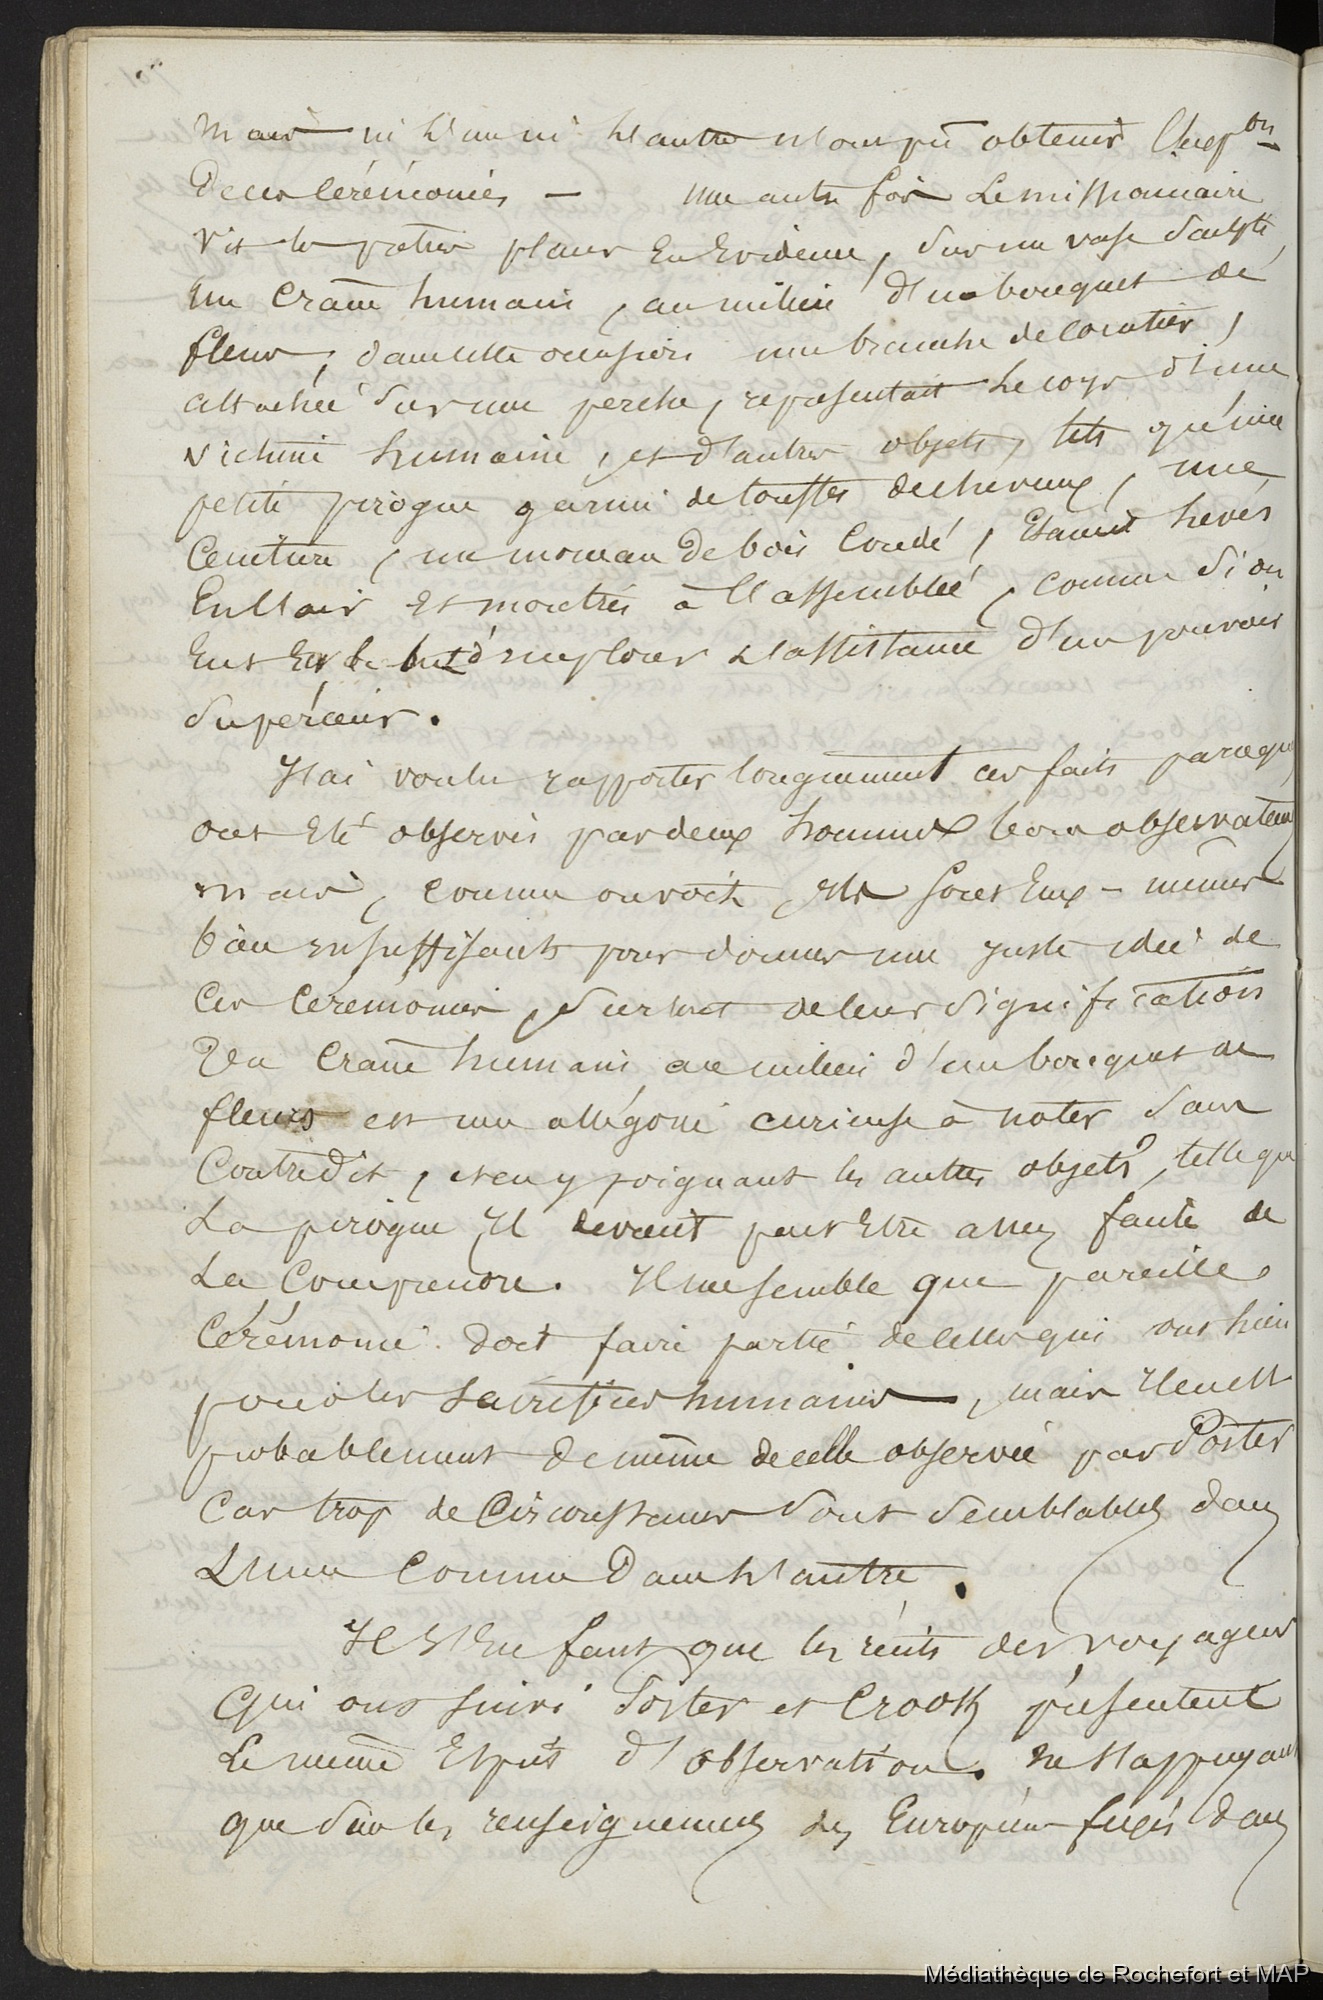 mais ni l'un ni l'autre n'ont pu obtenir l'exp.on
de ces Cérémonies — une autre fois le missionnaire
vit le prêtre placer en Evidence, sur un vase sculpté,
un Crâne humain, au milieu d'un bouquet de
fleurs, dans cette occasion une branche de cocotier,
attachée sur une perche, représentait le corps d'une
victime humaine, et d'autres objets, tels qu'une
petite pirogue garnie de touffes de cheveux, une
Ceinture, un morceau de bois Coudé, Etaient levés
En l'air Et montrés à l'assemblée, comme si on
Eut Eu le but d'implorer l'assistance d'un pouvoir
supérieur.
J'ai voulu rapporter longuement ces faits parcequ'
ont Eté observés par deux hommes bons observateurs
mais, comme on voit, ils sont Eux-mêmes
bien insuffisants pour donner une juste idée de
Ces Cérémonies, surtout de leur signification
Un Crâne humain au milieu d'un bouquet de
fleurs est une allégorie curieuse à noter sans
Contredit, et en y joignant les autres objets, telle que
La pirogue, Il devient peut Etre assez facile de
La Comprendre. Il me semble que pareille
Cérémonie doit faire partie de celles qui ont lieu
pour les Sacrifices humains, mais il en est
probablement de même de celle observée par Porter
Car trop de Circonstances sont semblables dans
L'une Comme dans l'autre.
Il s'En faut que les récits des voyageurs
Qui ont suivi Porter et Crook présentent
Le même Esprit d'observation. ne s'appuyant
que sur les renseignements des Européens fixés dans
Médiathèque de Rochefort et MAP